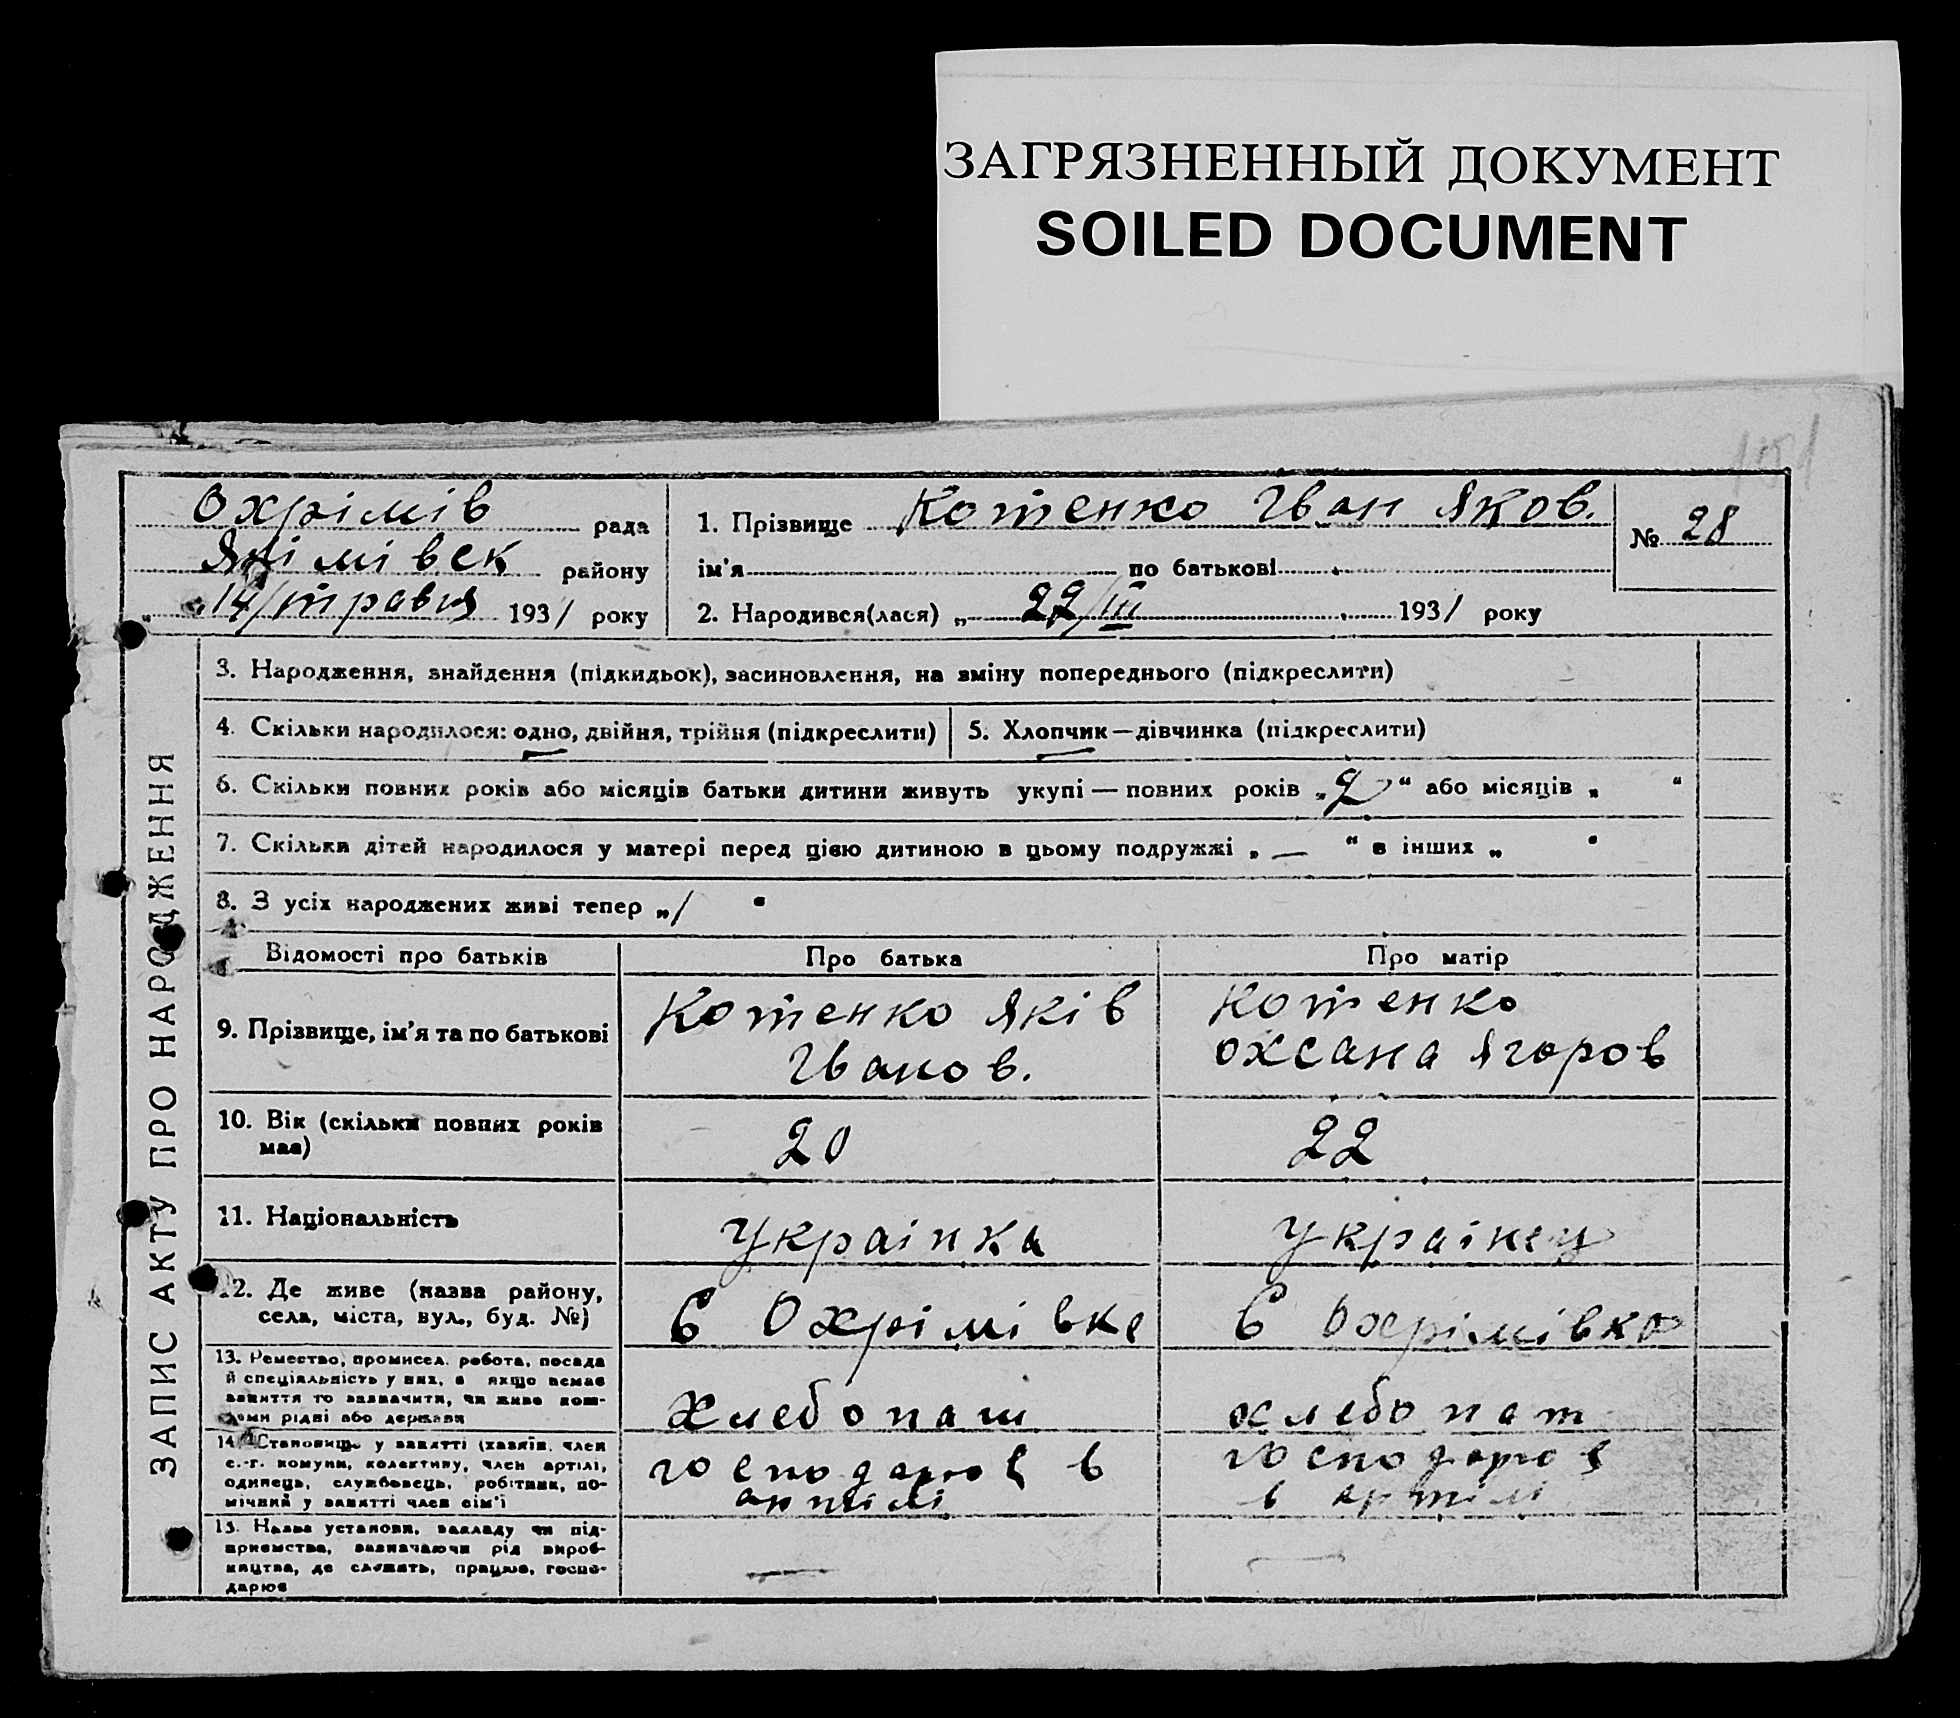 ЗАГРЯЗНЕННЫЙ ДОКУМЕНТ
SOILED DOCUMENT
Охрімів рада
Якімівск району
„ 14/травня 1931 року
1. Прізвище Котенко Іван Яков.
ім'я по батькові
2. Народився(лася) „ 22/III 1931 року
№ 28
ЗАПИС АКТУ ПРО НАРОДЖЕННЯ
3. Народження, знайдення (підкидьок), засиновлення, на зміну попереднього (підкреслити)
4. Скільки народилося: одно, двійня, трійня (підкреслити)
5. Хлопчик—дівчинка (підкреслити)
6. Скільки повних років або місяців батьки дитини живуть укупі — повних років „2“ або місяців „ “
7. Скільки дітей народилося у матері перед цією дитиною в цьому подружжі „ — “ в інших „ “
8. З усіх народжених живі тепер „1 “
Відомості про батьків
Про батька
Про матір
9. Прізвище, ім'я та по батькові
Котенко Яків
Іванов.
Котенко
Оксана Ягоров
10. Вік (скільки повних років
має)
20
22
11. Національність
Українка
Українец
12. Де живе (назва району,
села, міста, вул., буд. №)
С Охрімівке
С Охрімівка
13. Ремество, промисел. робота, посада
й спеціяльність у них, а якщо немає
заняття то зазначити, чи живе кош-
тами рідні або держави
хлебопаш
хлебопаш
14. Становище у занятті (хазяїн. член
с.-г. комуни, колективу, член артілі,
одинець, службовець, робітник, по-
мічний у занятті член сім'ї
господарює в
артілі
господарює
в артілі
15. Назва установи, закладу чи під-
приємства, зазначаючи рід вироб-
ництва, де служить, працює, госпо-
дарює
—
—